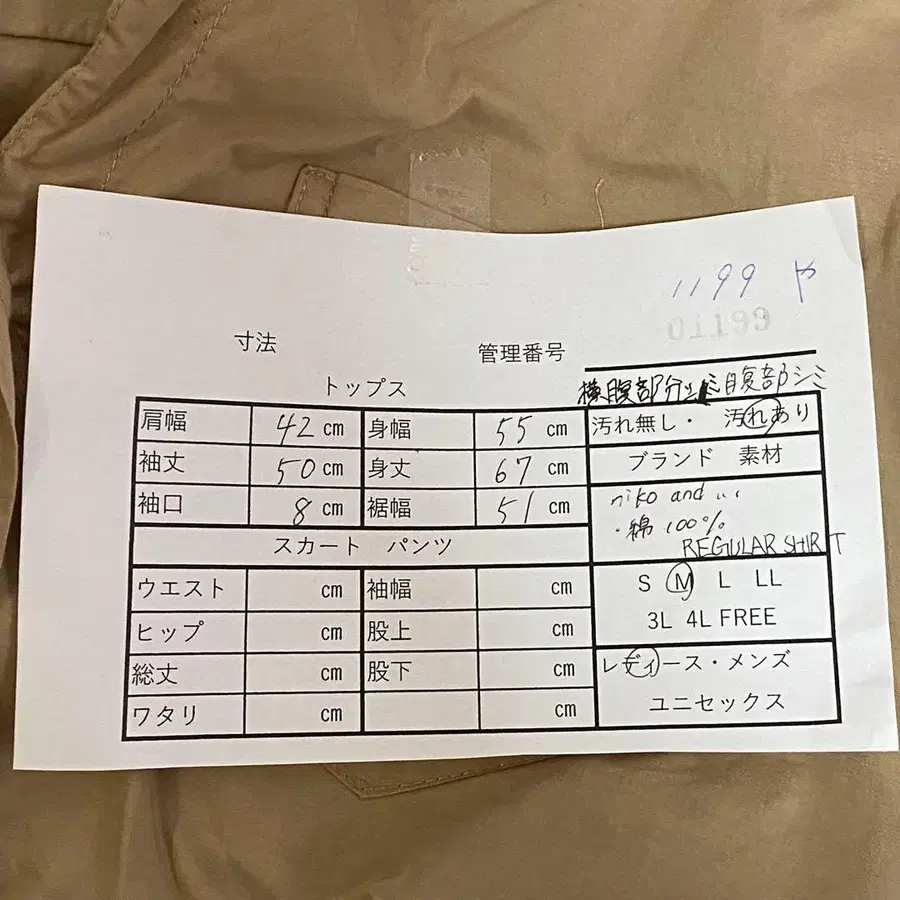 1199 や
01199
寸法
管理番号
トップス
横腹部分シミ 腹部シミ
肩幅 42 cm 身幅 55 cm 汚れ無し・ 汚れあり
袖丈 50 cm 身丈 67 cm ブランド 素材
袖口 8 cm 裾幅 51 cm niko and ...
・綿 100%
REGULAR SHIRT
スカート パンツ
ウエスト cm 袖幅 cm S M L LL
ヒップ cm 股上 cm 3L 4L FREE
総丈 cm 股下 cm レディース・メンズ
ワタリ cm cm ユニセックス